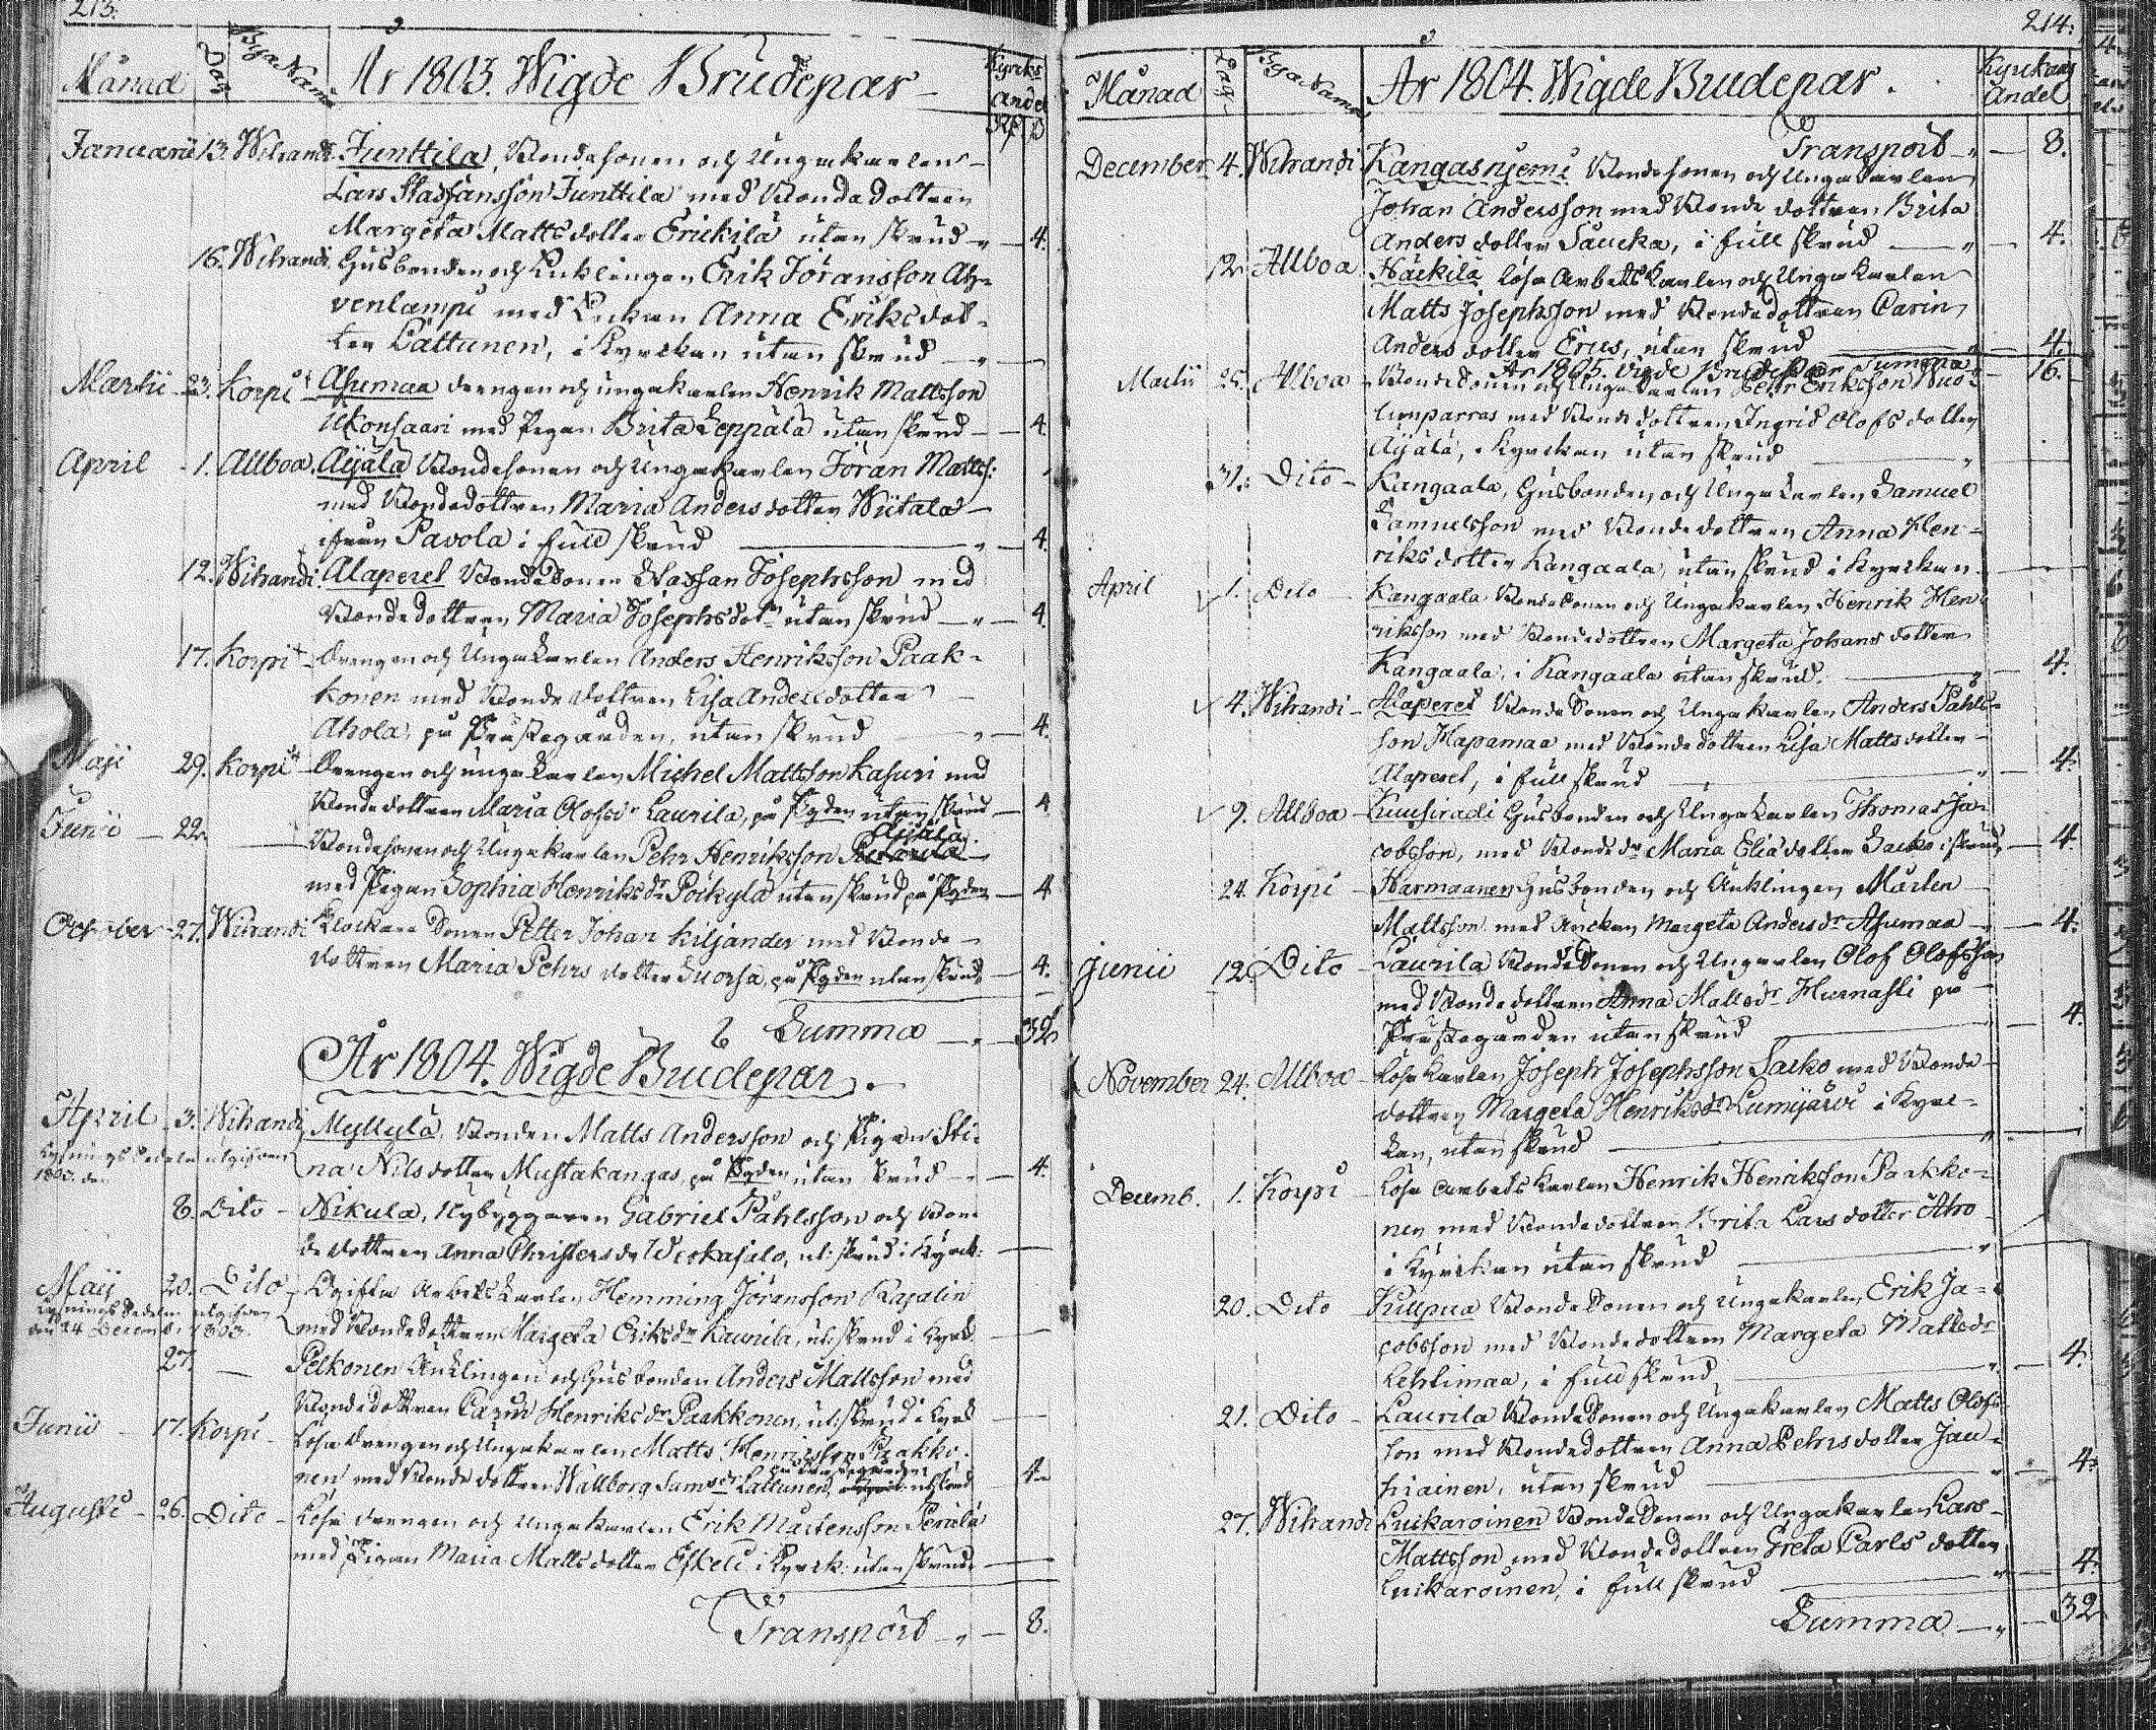 213.
Månad Dag Bya Namn År 1803. Wigde Brudepar Kyrcks andel
Januarii 13. Wihandi Junttila, Bondesonen och Ungakarlen
Lars Staffansson Junttila med Bondadottren
Margeta Mattsdotter Erickilä utan skrud 4.
16. Wihandi Husbonden och Enklingen Erik Jöransson Ah-
venlampi med Enkan Anna Eriksdot-
ter Lattunen, i Kyrckan utan skrud
Martii 23. Korpi Asumaa drengen och ungakarlen Henrik Mattsson
Ukonsaari med Pigan Brita Leppälä utan skrud 4.
April 1. Allboa Äijälä Bondesonen och Ungakarlen Jöran Matts:
med Bondedottren Maria Andersdotter Wiitala
ifrån Pavola i full skrud 4.
12. Wihandi Alaperet Bondesonen Staffan Josephsson med
Bondedottren Maria Josephsdotr utan skrud 4.
17. Korpi Drengen och Ungakarlen Anders Henriksson Paak-
konen med Bondedottren Lisa Andersdotter
Ahola på Prästegården, utan skrud 4.
Maji 29. Korpi Drengen och ungakarlen Michel Mattsson Kasuri med
Bondedottren Maria Olofsdr Laurila, på Pgden utan skrud 4
Junii 22. Äijälä
Bondesonen och Ungakarlen Pehr Henriksson
med Pigan Sophia Henriksdr Pöykylä utan skrud på Pgden 4
October 27. Wihandi Klockare Sonen Petter Johan Kiljander med Bonde-
dottren Maria Pehrs dotter Suorsa, på Pgden utan skrud 4.
Summa 32
År 1804. Wigde Brudepar.
April 3. Wihandi Myllylä, Bonden Matts Andersson och Pigan Sti-
Lysnings Sedeln utgifven na Nilsdotter Mustakangas, på Pgden utan skrud 4.
1803. den
8. Dito Nikula, Nybyggaren Gabriel Påhlsson och Bon-
dedottren Anna Christersdr Wiokajalo, ut: skrud i Kyrck:
Maij 20. Dito Ogifta Arbetskarlen Hemming Jöransson Rajalin
Lysnings Sedeln utgifven
den 24 Decemb: 1803. med Bondedottren Margeta Eriksdr Laurila, ut: skrud i Kyrck
27. Pelkonen Änklingen och Husbonden Anders Mattsson med
Bondedottren Carin Henriksdr Paakkonen, ut: skrud i Kyrck
Junii 17. Korpi Löse drengen och Ungakarlen Matts Henriksson Paakko-
på Prästegården
nen med Bondedottren Wallborg Samsdr Lattunen, ut skrud 4
Augusti 26. Dito Löse drengen och Ungakarlen Erik Mårtensson Perälä
med Pigan Maria Mattsdotter Eskeli i Kyrck: utan skrud
Transport 8.
214.
Månad Dag Bya Namn År 1804. Wigde Brudepar. Kyrckans Andel
Transport 8.
December 4. Wihandi Kangasnjemi Bondesonen och Ungakarlen
Johan Andersson med Bondedottren Brita
Andersdotter Saucka, i full skrud 4.
12. Allboa Häckilä Löse Arbetskarlen och Ungakarlen
Matts Josephsson med Bondedottren Carin
Andersdotter Erus, utan skrud 4.
År 1805. Vigde Brudepar Summa 16.
Martii 25. Allboa Bondesonen och Ungakarlen Pehr Eriksson Wuo-
lunparras med Bondedottren Ingrid Olofsdotter
Äijälä, i Kyrckan utan skrud
31. Dito Kangaala, Husbonden och Ungakarlen Samuel
Samuelsson med Bondedottren Anna Hen-
riksdotter Kangaala, utan skrud i Kyrckan
April 1. Dito Kangaala Bondesonen och Ungakarlen Henrik Hen-
riksson med Bondedottren Margeta Johansdotter
Kangaala, i Kangaala utan skrud. 4.
4. Wihandi Alaperet Bondesonen och Ungakarlen Anders Påhls-
son Hapamaa med Bondedottren Lisa Mattsdotter
Alaperet, i full skrud 4.
9. Allboa Kuusiradi Husbonden och Ungakarlen Thomas Ja-
cobsson, med Bondedr Maria Eliædotter Sacko i skrud 4.
24. Korpi Harmaanen Husbonden och Änklingen Mårten
Mattsson med Änckan Margeta Andersdr Asumaa 4.
Junii 12. Dito Laurila Bondesonen och Ungkarlen Olof Olofsson
med Bondedottren Anna Mattsdr Hurnasli på
Prästegården utan skrud 4.
November 24. Allboa Löse karlen Joseph Josephsson Sacko med Bonde-
dottren Margeta Henriksdr Lumijärvi i Kyrc-
kan, utan skrud
Decemb. 1. Korpi Löse arbetskarlen Henrik Henriksson Paakko-
nen med Bondedottren Brita Larsdotter Aho
i Kyrckan utan skrud
20. Dito Kulpua Bondesonen och Ungakarlen Erik Ja-
cobsson med Bondedottren Margeta Mattsdr
Lehtimaa, i full skrud 4.
21. Dito Laurila Bondesonen och Ungakarlen Matts Olofs-
son med Bondedottren Anna Pehrsdotter Jau-
hiainen, utan skrud 4.
27. Wihandi Luikaroinen Bondesonen och Ungakarlen Lars
Mattsson med Bondedottren Greta Carlsdotter
Luikaroinen, i full skrud 4.
Summa 32